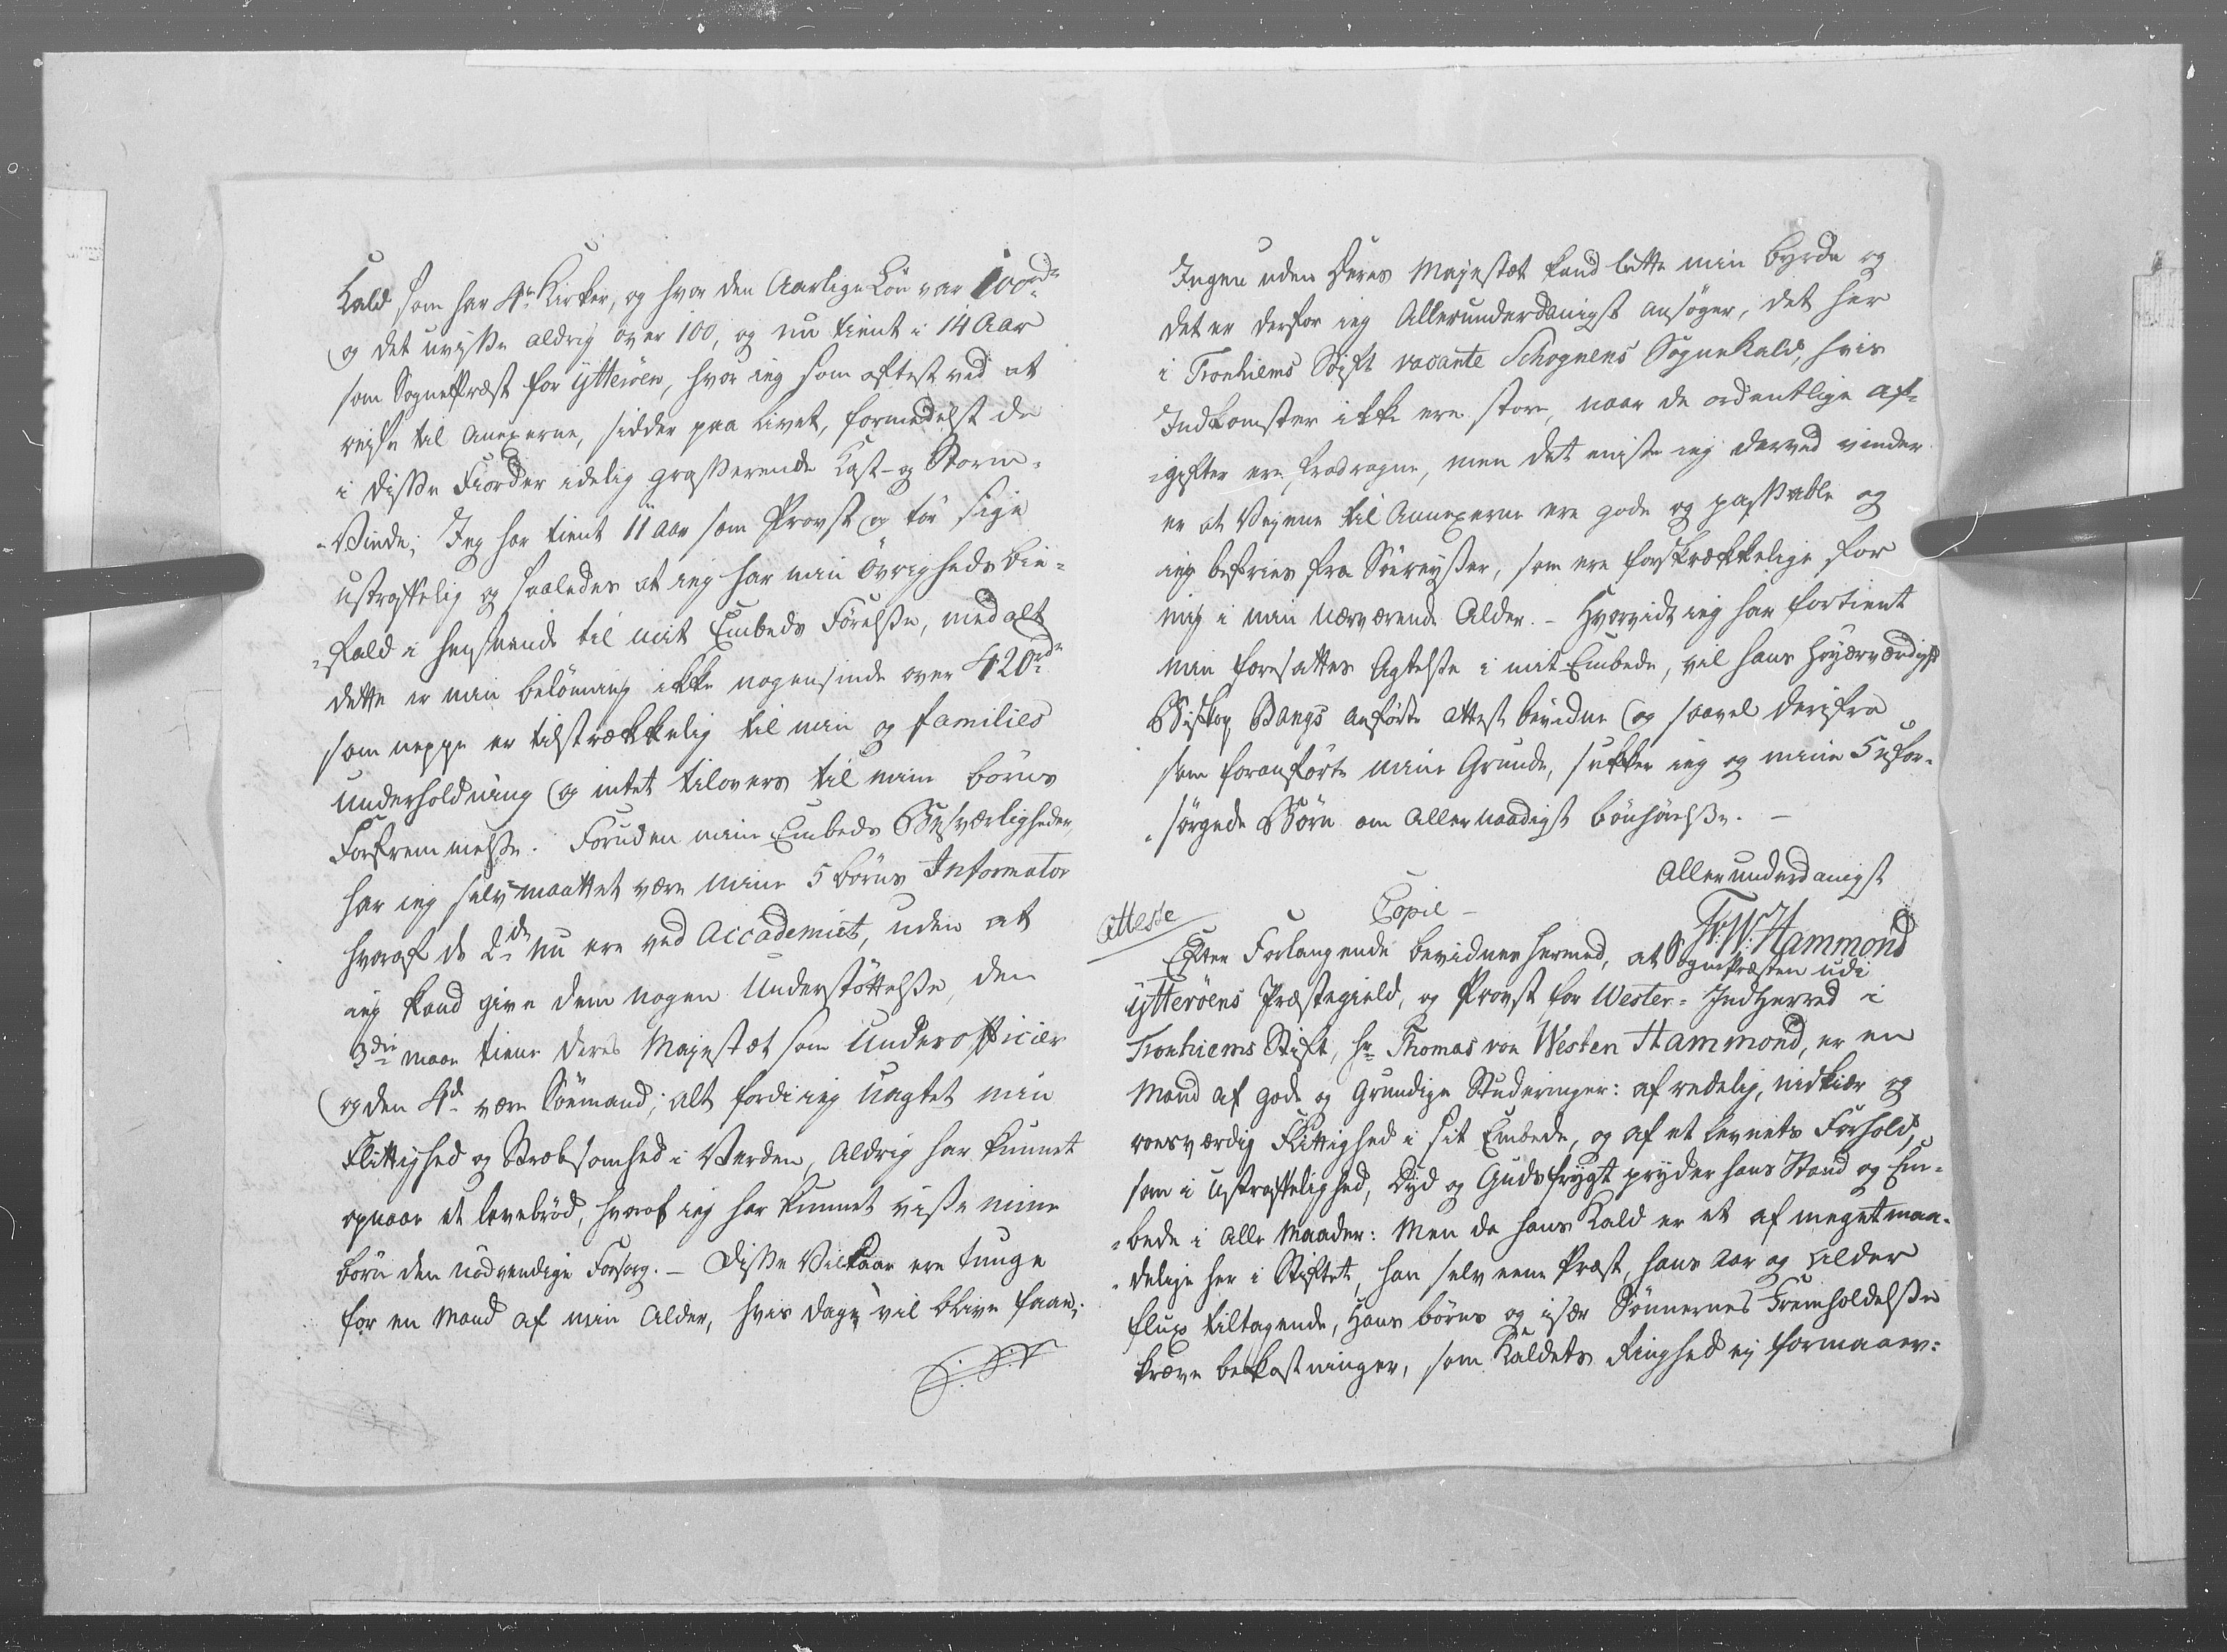 Kald som har 4re Kirker, og hvor den Aarlige Løn var 100rdr
og det uvisse aldrig over 100, og nu tient i 14 Aar
som SognePræst for Ytterøen, hvor ieg som oftest ved at
reise til Anexerne, sidder paa Livet, formedelst de
i disse Fiorder idelig grasserende Kast- og Storm-
-Vinde; Jeg har tient 11 aar som Provst og tør sige
ustraffelig og saaledes at ieg har min Øvrigheds Bie-
-fald i henseende til mit Embeds Førelse, med alt
dette er min belønning ikke nogensinde over 420rdr
som neppe er tilstrækkelig til min og families
underholdning og intet tilovers til mine børns
Forfremmelse. Foruden mine Embeds Besværligheder,
har ieg selv maattet være mine 5 børns Informator
hvoraf de 2de nu ere ved Accademiet, uden at
ieg kand give dem nogen Understøttelse, den
3die maae tiene Deres Majestæt som Underofficier
og den 4de være Søemand; alt fordi ieg uagtet min
Flittighed og Strebsomhed i Verden, Aldrig har kunnet
opnaae et levebrød, hvoraf ieg har kunnet viise mine
børn den nødvendige Forsorg. – Disse Vilkaar ere tunge
for en Mand af min Alder, hvis dage vil blive faae;
Ingen uden Deres Majestæt kand lette min byrde og
det er derfor ieg Allerunderdanigst ansøger, det her
i Tronhiems Stift vacante Schognens SogneKald, hvis
Indkomster ikke ere store, naar de ordentlige Af-
-gifter ere fradragne, men det eniste ieg derved vinder
er at Vejene til Annexerne ere gode og passable og
ieg befries fra Søereyser, som ere forskrækkelige for
mig i min nærværende Alder. – Hvorvidt ieg har fortient
min foresattes Agtelse i mit Embede, vil hans Høyærværdighed
Biskop Bangs anførte attest bevidne og saavel derfra
som foranførte mine Grunde, sukker ieg og mine 5 ufor-
-sørgede Børn om Allernaadigst bønhørelse. –
Allerunderdanigst
T:v:W: Hammond
Copie –
Atteste
Efter Forlangende bevidnes hermed, at SognePræsten udi
Ytterøens Præstegield, og Provst for Wester-Indherred i
Tronhiems Stift, Hr Thomas von Westen Hammond, er en
Mand af gode og Grundige Studeringer: af redelig, nidkiær og
roesværdig Flittighed i sit Embede, og af et Levnets Forhold,
som i Ustraffelighed, Dyd og Gudsfrygt pryder hans Stand og Em-
-bede i Alle Maader: Men da hans Kald er et af meget maa-
-delige her i Stiftet, han selv eene Præst, hans Aar og Alder
flux tiltagende, Hans børns og især Sønnernes Fremholdelse
kræve bekostninger, som Kaldets Ringhed ej formaaer: